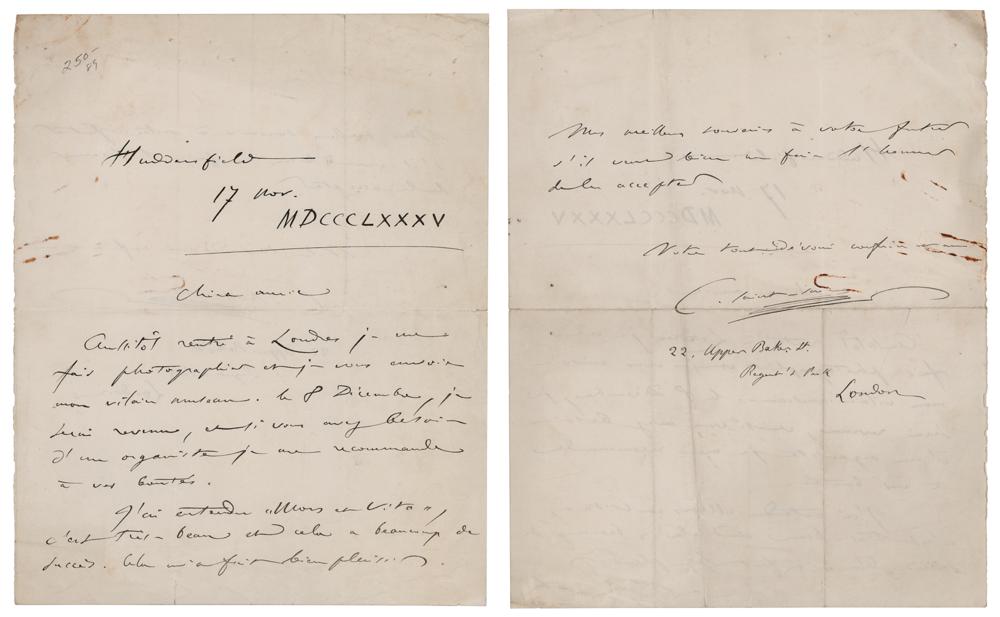 250-
89
Huddersfield
17 nov.
MDCCCLXXXV
Chère amie
Aussitôt rentré à Londres je me
fais photographier et je vous envoie
mon vilain museau. Le 8 Décembre, je
serai revenu, et si vous avez besoin
d'un organiste je me recommande
à vos bontés.
J'ai entendu «Mors et Vita»,
c'est très beau et cela a beaucoup de
succès. Cela m'a fait bien plaisir.
Mes meilleurs souvenirs à votre
s'il veut bien me faire l'honneur
de les accepter
Votre tout dévoué confrère et ami
C. Saint-Saëns
22, Upper Baker St.
Regent's Park
London